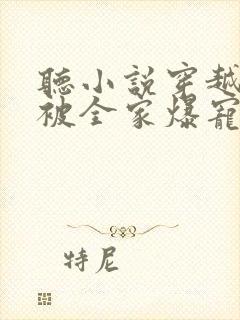 聽小說穿越
被全家爆寵
特尼